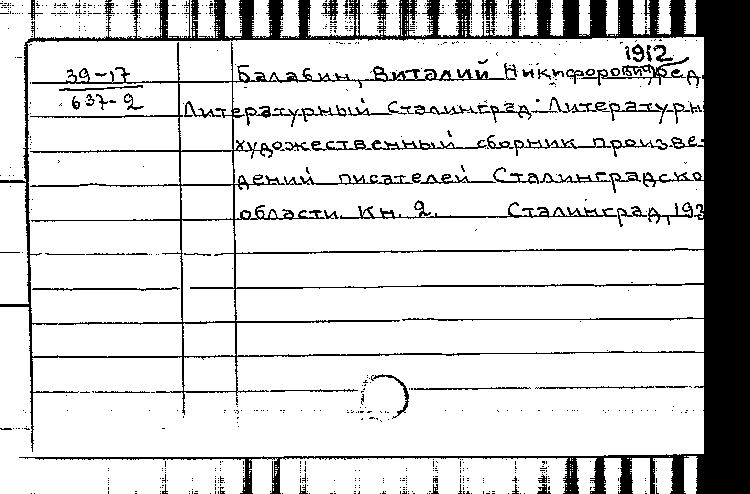 1912
39-17
637-2
Балабин, Виталий Никифорович, ред.
Литературный Сталинград: Литературн
художественный сборник произве-
дений писателей Сталинградско
области. Кн. 2. Сталинград, 193